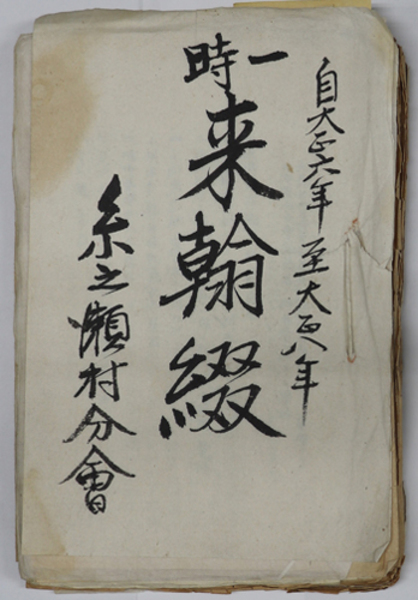 自大正六年 至大正八年
一時
来翰綴
糸之瀬村分會